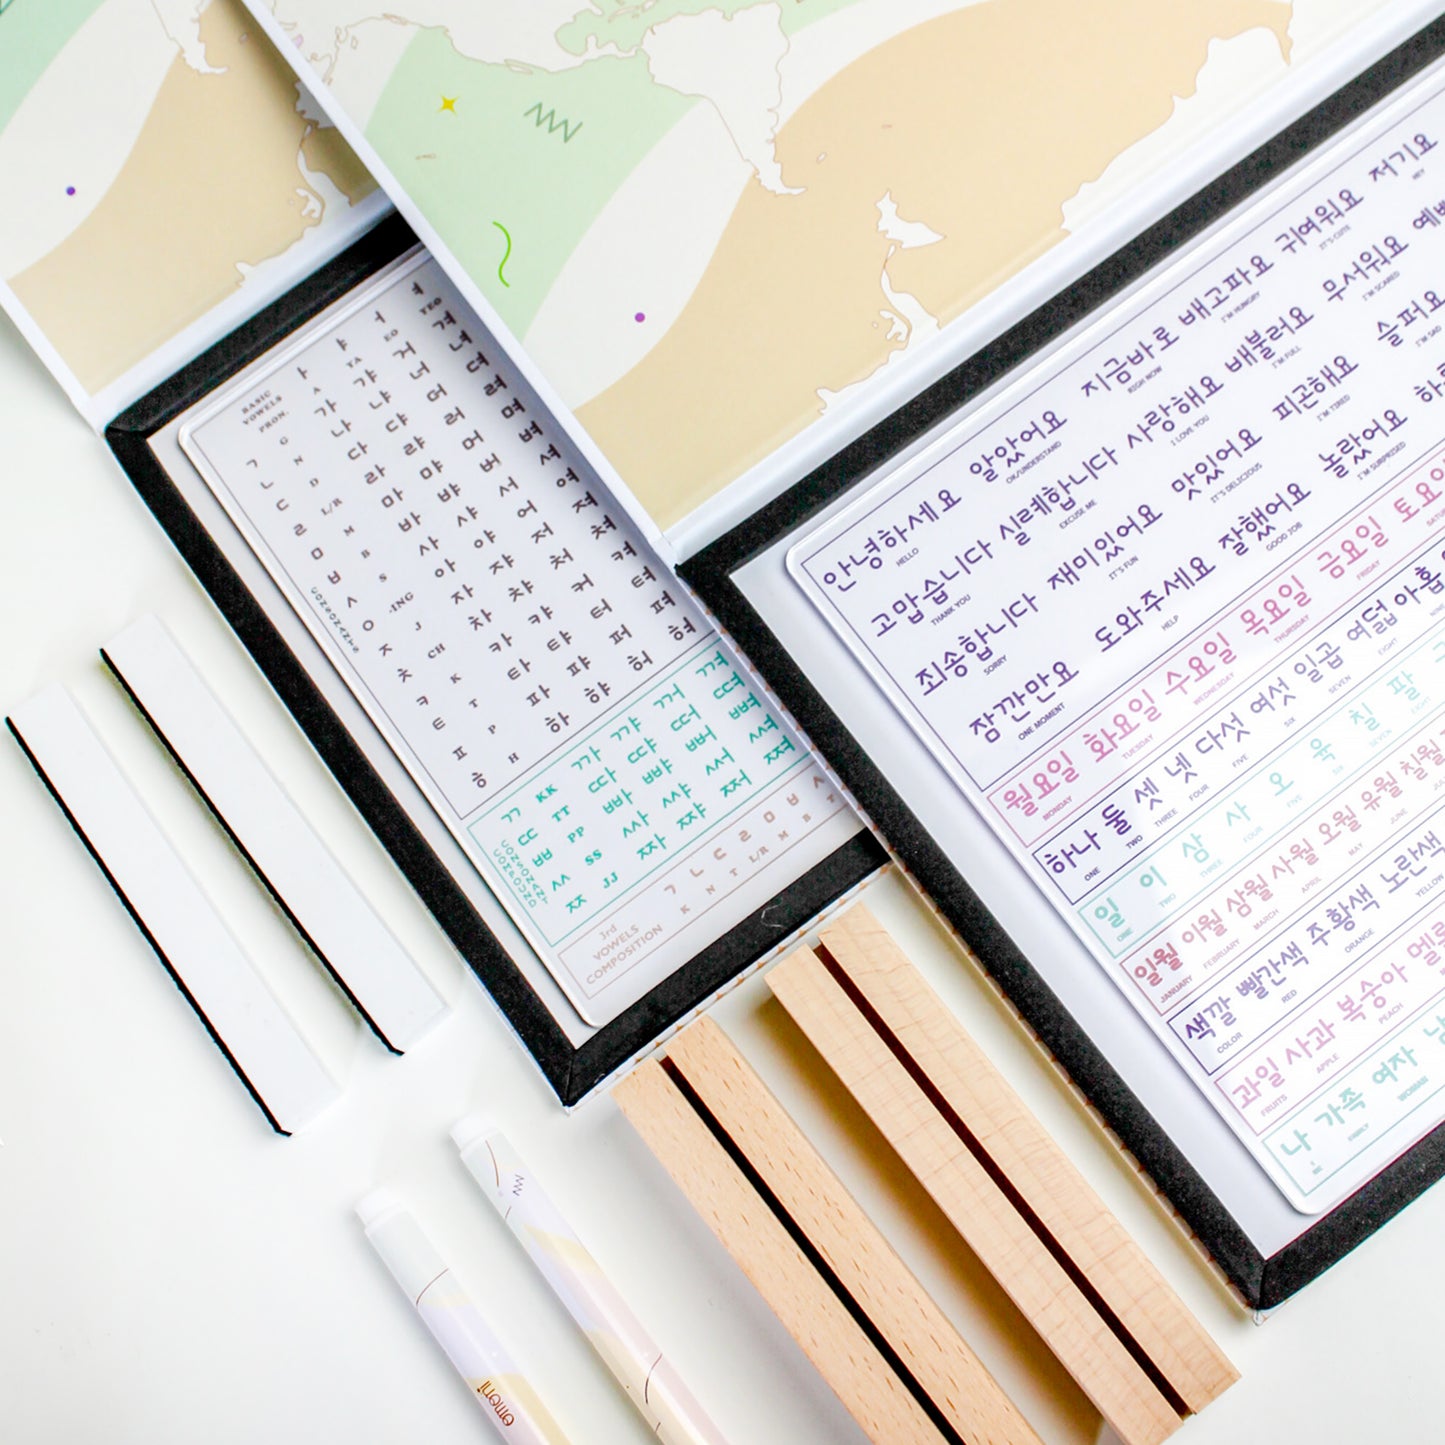 BASIC
VOWELS
PRON.
ㅏ ㅑ ㅓ ㅕ
A YA EO YEO
CONSONANTS
ㄱ G 가 갸 거 겨
ㄴ N 나 냐 너 녀
ㄷ D 다 댜 더 뎌
ㄹ L/R 라 랴 러 려
ㅁ M 마 먀 머 며
ㅂ B 바 뱌 버 벼
ㅅ S 사 샤 서 셔
ㅇ -ING 아 야 어 여
ㅈ J 자 쟈 저 져
ㅊ CH 차 챠 처 쳐
ㅋ K 카 캬 커 켜
ㅌ T 타 탸 터 텨
ㅍ P 파 퍄 퍼 펴
ㅎ H 하 햐 허 혀
COMPOUND
CONSONANT
ㄲ KK 까 꺄 꺼 껴
ㄸ TT 따 땨 떠 뗘
ㅃ PP 빠 뺘 뻐 뼈
ㅆ SS 싸 쌰 써 쎠
ㅉ JJ 짜 쨔 쩌 쪄
3rd
VOWELS
COMPOSITION
ㄱ ㄴ ㄷ ㄹ ㅁ ㅂ ㅅ
K N T L/R M B T
안녕하세요 알았어요 지금바로 배고파요 귀여워요 저기요
HELLO OK/UNDERSTAND RIGH NOW I'M HUNGRY IT'S CUTE HEY
고맙습니다 실례합니다 사랑해요 배불러요 무서워요
THANK YOU EXCUSE ME I LOVE YOU I'M FULL I'M SCARED
죄송합니다 재미있어요 맛있어요 피곤해요 슬퍼요
SORRY IT'S FUN IT'S DELICIOUS I'M TIRED I'M SAD
잠깐만요 도와주세요 잘했어요 놀랐어요
ONE MOMENT HELP GOOD JOB I'M SURPRISED
월요일 화요일 수요일 목요일 금요일 토요일
MONDAY TUESDAY WEDNESDAY THURSDAY FRIDAY
하나 둘 셋 넷 다섯 여섯 일곱 여덟 아홉
ONE TWO THREE FOUR FIVE SIX SEVEN EIGHT
일 이 삼 사 오 육 칠 팔
ONE TWO THREE FOUR FIVE SIX SEVEN EIGHT
일월 이월 삼월 사월 오월 유월 칠월
JANUARY FEBRUARY MARCH APRIL MAY JUNE
색깔 빨간색 주황색 노란색
COLOR RED ORANGE YELLOW
과일 사과 복숭아
FRUITS APPLE PEACH
나 가족 여자
I FAMILY WOMAN
emeni